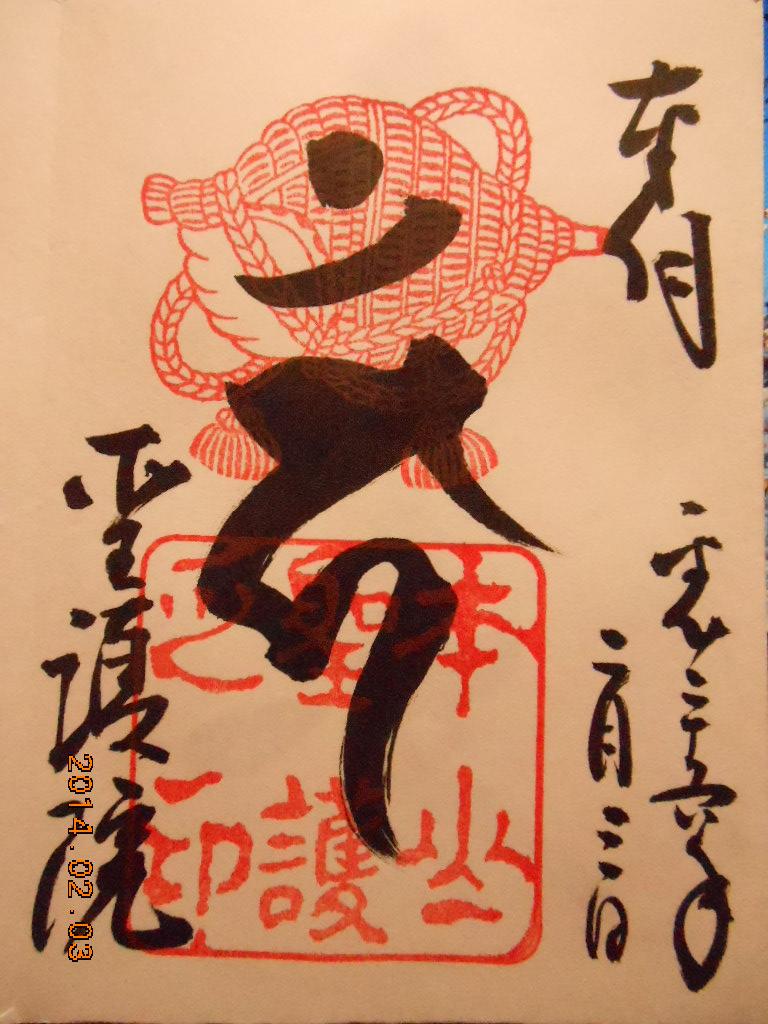 奉拝
平成二十六年
二月三日
本山
聖護
之印
聖護院
2014.02.03